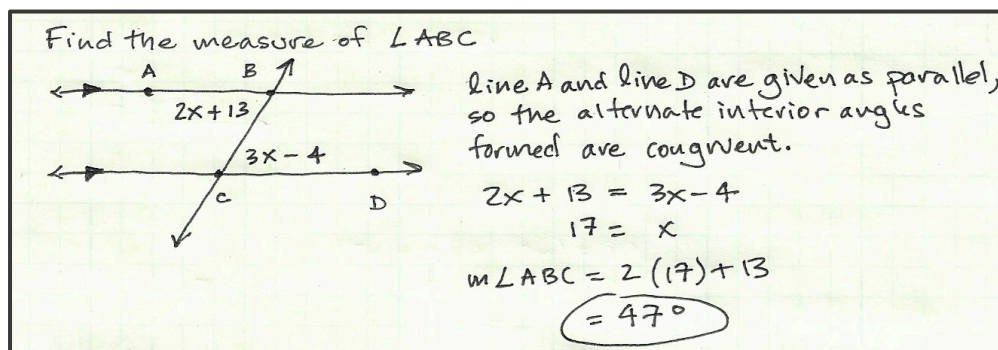 Find the measure of ∠ABC
A B
2x+13
3x-4
C D
line A and line D are given as parallel,
so the alternate interior angles
formed are congruent.
2x + 13 = 3x-4
17 = x
m∠ABC = 2(17)+13
= 47°